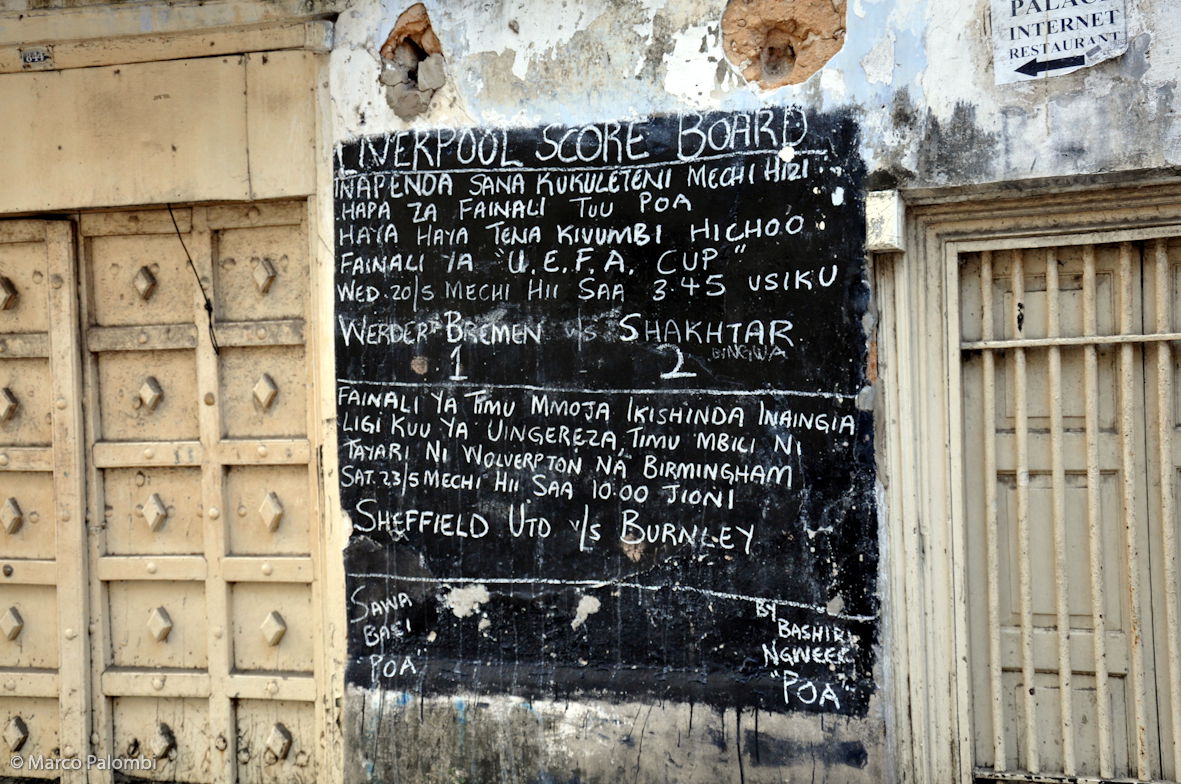 844
PALACE
INTERNET
RESTAURANT
LIVERPOOL SCORE BOARD
INAPENDA SANA KUKULETENI MECHI HIZI
HAPA ZA FAINALI TUU POA
HAYA HAYA TENA KIVUMBI HICHOO
FAINALI YA "U.E.F.A. CUP"
WED. 20/5 MECHI HII SAA 3.45 USIKU
WERDER BREMEN V/S SHAKHTAR
BINGWA
1 2
FAINALI YA TIMU MMOJA IKISHINDA INAINGIA
LIGI KUU YA UINGEREZA TIMU MBILI NI
TAYARI NI WOLVERPTON NA BIRMINGHAM
SAT. 23/5 MECHI HII SAA 10.00 JIONI
SHEFFIELD UTD V/S BURNLEY
SAWA
BASI
POA
BY
BASHIR
"POA"
© Marco Palombi